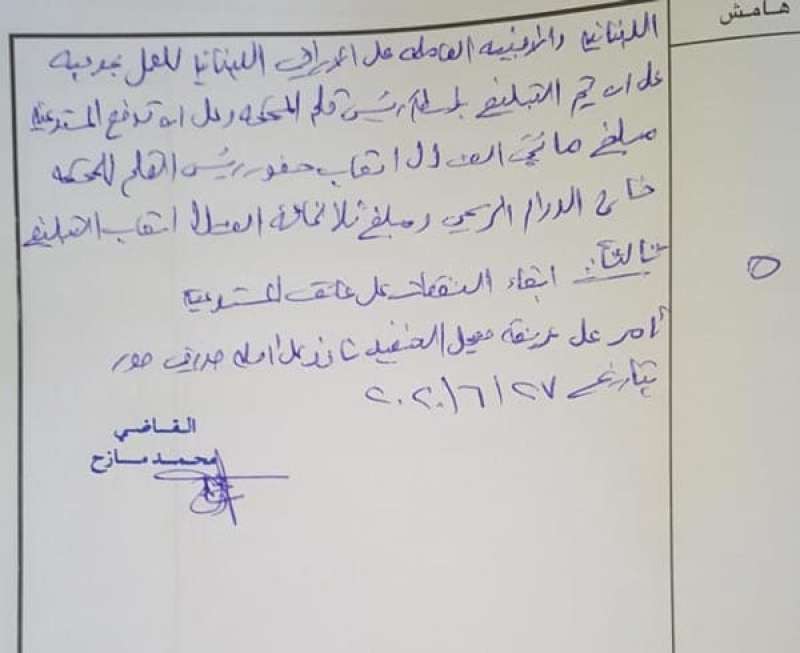 هامش
اللبنانية والاجنبية العاملة على الاراضي اللبنانية للعمل بموجبه
على ان يتم التبليغ بواسطة رئيس قلم المحكمة وعلى ان تدفع المستدعية
مبلغ مائتي الف ل ل اتعاب حضور رئيس القلم للمحكمة
خارج الدوام الرسمي ومبلغ ثلاثماية الف ل ل اتعاب التبليغ
ثالثاً: ابقاء النفقات على عاتق المستدعية
أمر على عريضة معجل التنفيذ نافذ على اصله صدر في صور
بتاريخ ٢٧/٦/٢٠٢٠
القاضي
محمد مازح